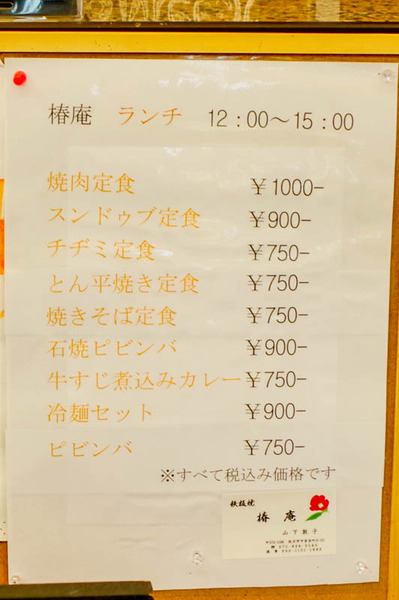 椿庵 ランチ 12:00～15:00
焼肉定食 ￥1000-
スンドゥブ定食 ￥900-
チヂミ定食 ￥750-
とん平焼き定食 ￥750-
焼きそば定食 ￥750-
石焼ピビンバ ￥900-
牛すじ煮込みカレー ￥750-
冷麺セット ￥900-
ピビンバ ￥750-
※すべて税込み価格です
鉄板焼
椿庵